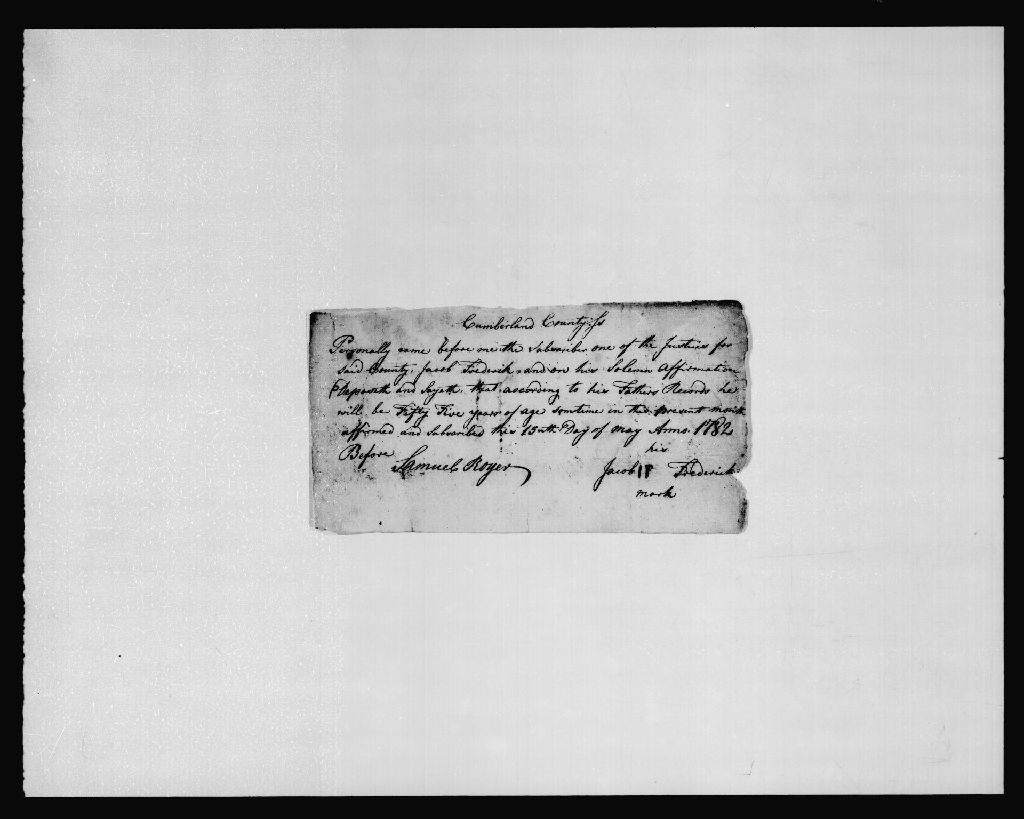 Cumberland County Ss
Personally came before me the Subscriber one of the Justices for
said County, Jacob Frederick, and on his Solemn Affirmation
and Sayeth that according to his Fathers Records he
will be Fifty Five years of age somtime in this present month
affirmed and Subscribed this 15th Day of may Anno 1782
Before
his
Samuel Royer Jacob 11 Frederick
mark